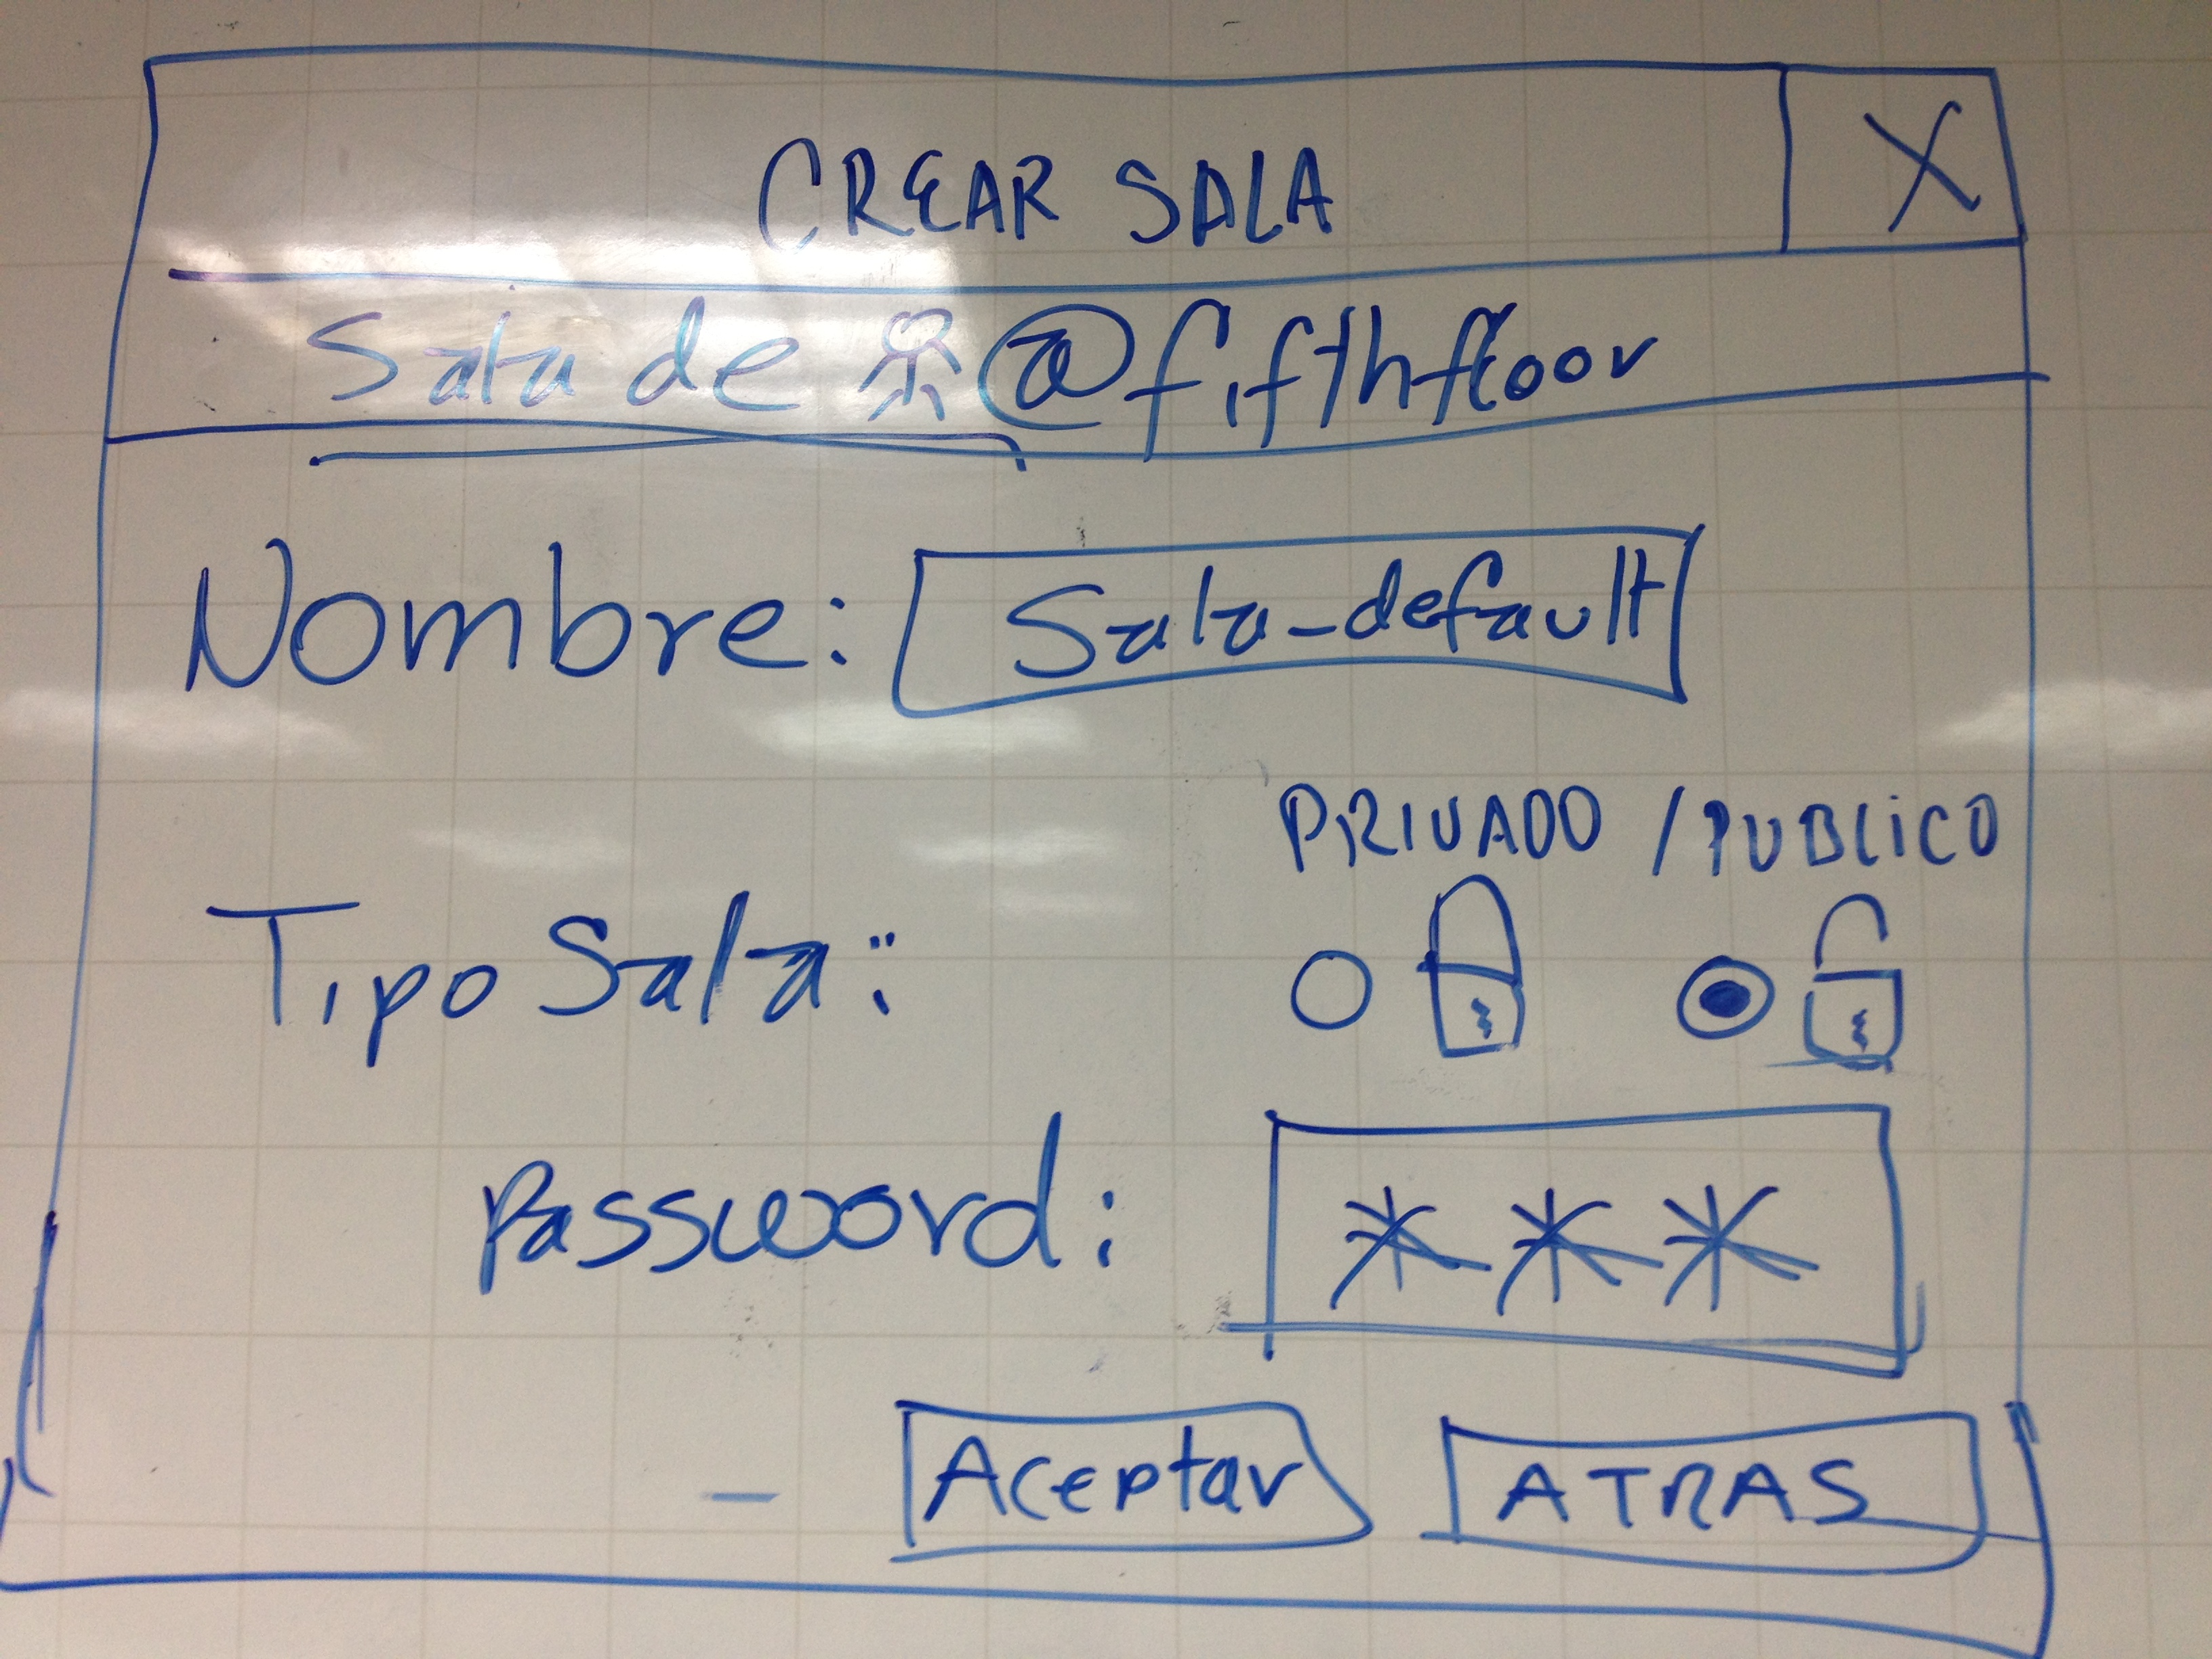 CREAR SALA X
Sala de @fifthfloor
Nombre: Sala_default
PRIVADO / PUBLICO
Tipo Sala:
Password: ***
Aceptar ATRAS